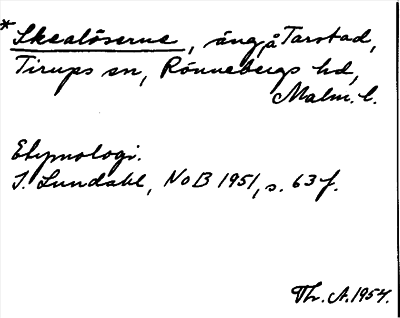 *Skealöserne, äng å Tarstad,
Tirups sn, Rönnebergs hd,
Malm. l.
Etymologi.
I. Lundahl, NoB 1951, s. 63 f.
Th. A. 1954.